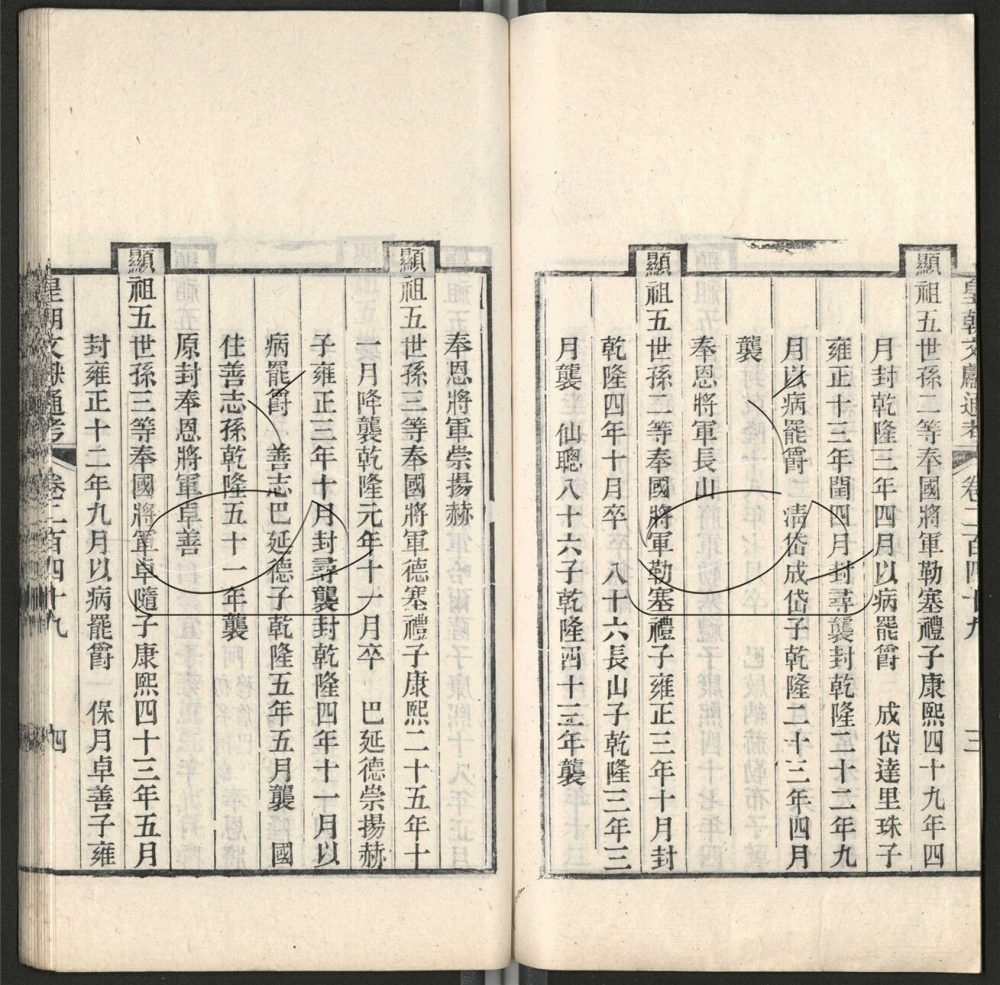 皇朝文獻通考 卷二百四十九 三
顯祖五世孫二等奉國將軍勒塞禮子康熙四十九年四
月封乾隆三年四月以病罷爵 成岱達里珠子
雍正十三年閏四月封尋襲封乾隆二十二年九
月以病罷爵 二凊岱成岱子乾隆二十三年四月
襲
奉恩將軍長山
顯祖五世孫二等奉國將軍勒塞禮子雍正三年十月封
乾隆四年十月卒 八十六長山子乾隆三年三
月襲 仙聰八十六子乾隆四十三年襲
奉恩將軍崇揚赫
顯祖五世孫三等奉國將軍德塞禮子康熙二十五年十
一月降襲乾隆元年十一月卒 巴延德崇揚赫
子雍正三年十月封尋襲封乾隆四年十一月以
病罷爵 善志巴延德子乾隆五年五月襲 國
住善志孫乾隆五十一年襲
原封奉恩將軍卓善
顯祖五世孫三等奉國將軍卓隨子康熙四十三年五月
封雍正十二年九月以病罷爵 保月卓善子雍
皇朝文獻通考 卷二百四十九 四